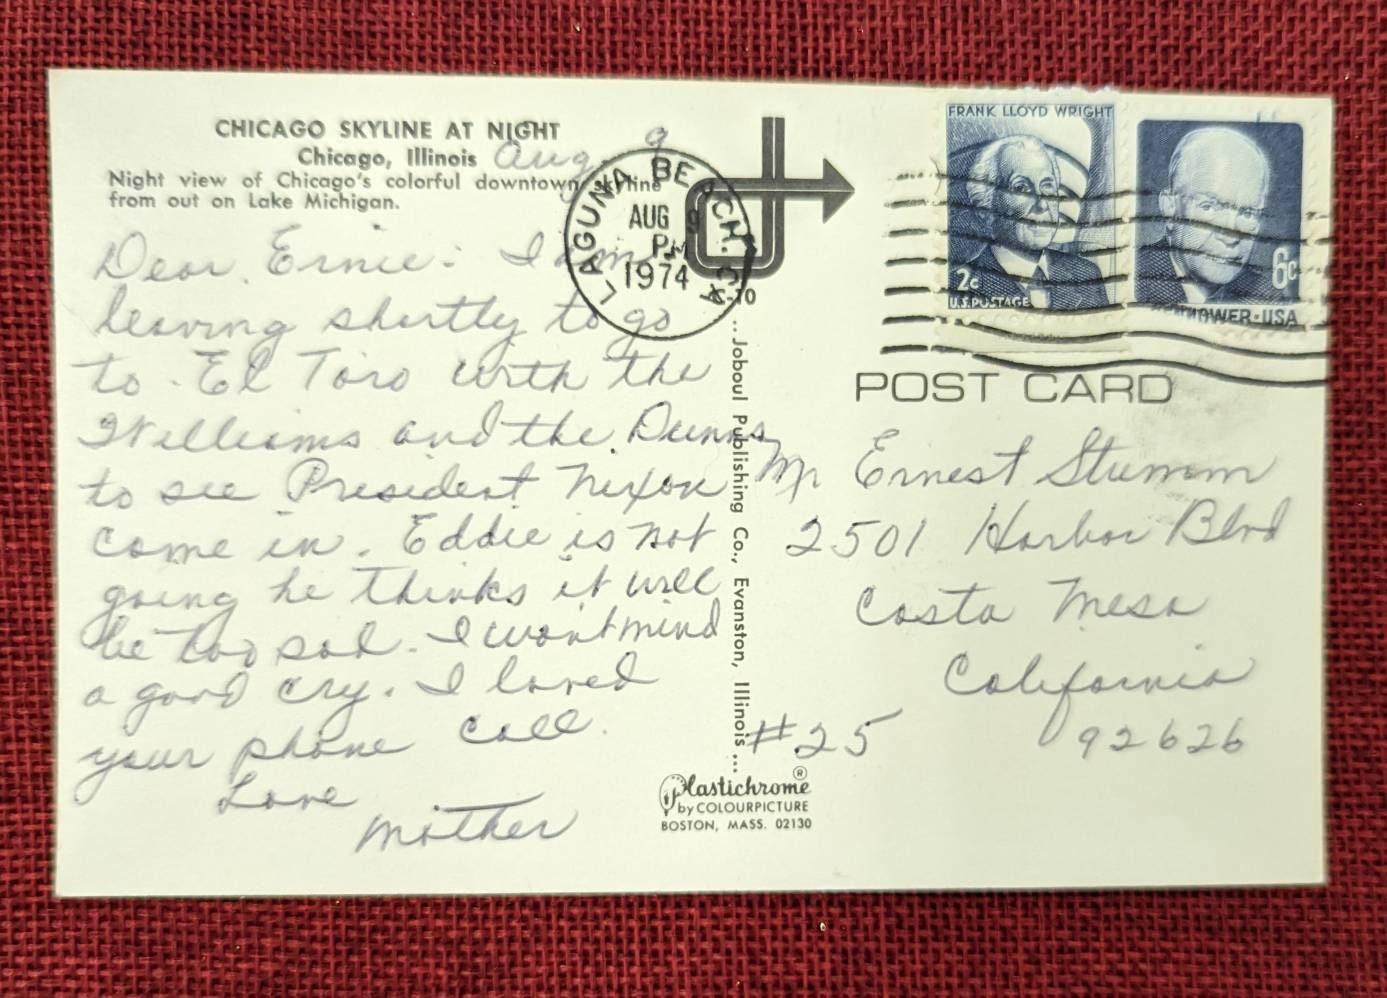 CHICAGO SKYLINE AT NIGHT
Chicago, Illinois
Aug. 9
Night view of Chicago's colorful downtown skyline
from out on Lake Michigan.
Dear Ernie - I am
leaving shortly to go
to El Toro with the
Williams and the Dunns
to see President Nixon
come in. Eddie is not
going he thinks it will
be too sad. I wont mind
a good cry. I loved
your phone call.
Love
Mother
LAGUNA BEACH, CA
AUG 9
PM
1974
FRANK LLOYD WRIGHT
2c
U.S. POSTAGE
6c
EISENHOWER·USA
POST CARD
Mr Ernest Stumm
2501 Harbor Blvd
Costa Mesa
California
#25 92626
...Joboul Publishing Co., Evanston, Illinois...
Plastichrome®
by COLOURPICTURE
BOSTON, MASS. 02130